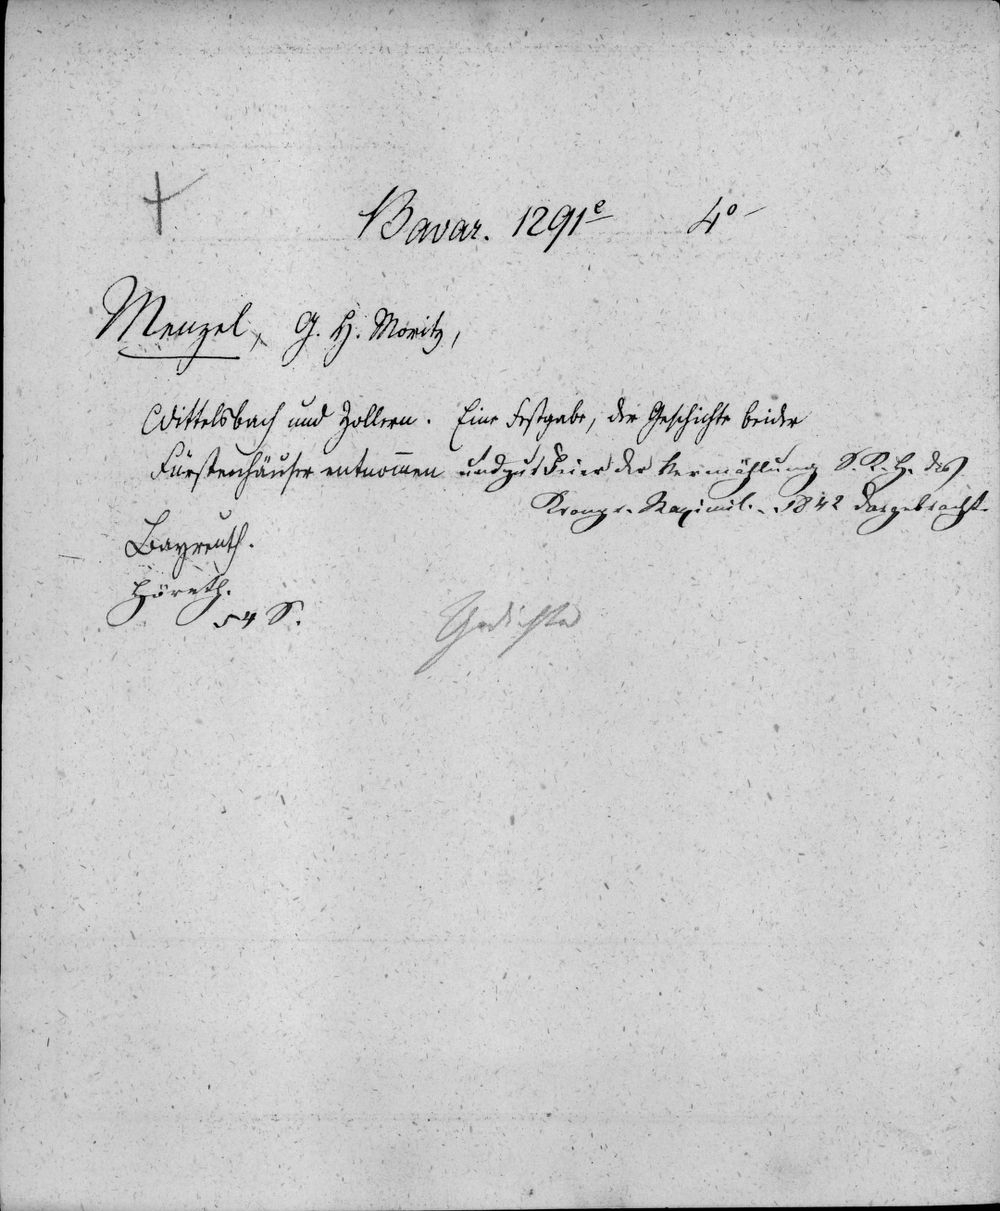 Bavar. 1291e 4o
Menzel, G. H. Moritz,
Wittelsbach und Zollern. Eine Festgabe, der Geschichte beider
Fürstenhäuser entnommen und zur Feier der Vermählung S. K. H. des
Kronpr. Maximil. . . 1842 dargebracht.
Bayreuth.
Höreth.
54 S.
Gedichte